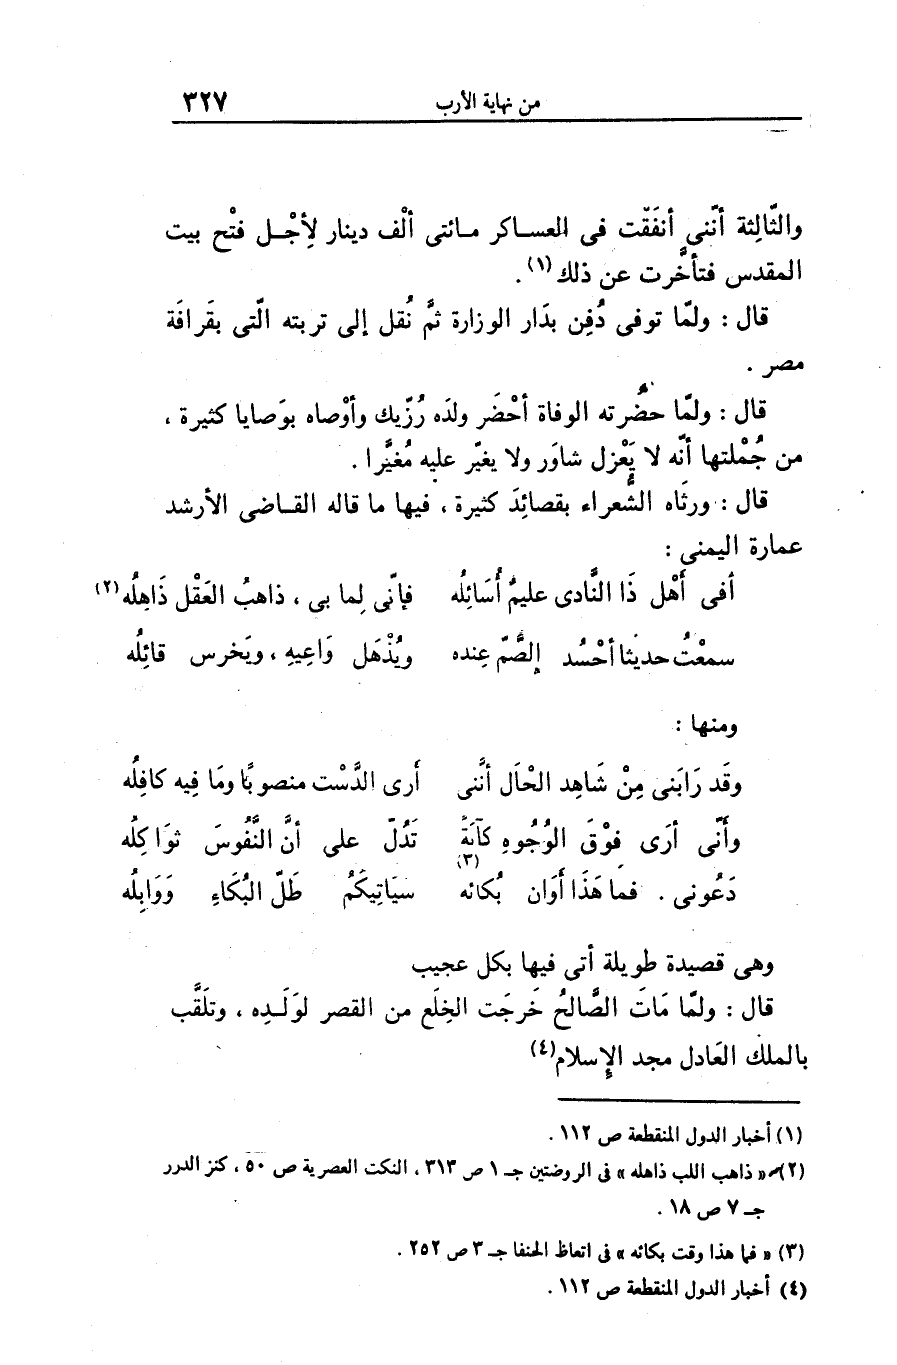 من نهاية الأرب ٣٢٧
والثّالِثة أنّني أنفَقْت فى العساكر مائتى ألْف دينار لِأجْل فتْح بيت
المقدس فتأخَّرت عن ذلك (١) .
قال : ولمّا توفى دُفِن بدَار الوزارة ثمَّ نُقل إلى تربته الّتى بقَرافَة
مصر .
قال : ولمّا حضَرته الوفاة أحْضَر ولدَه رُزّيك وأوْصاه بوَصايا كثيرة ،
من جُمْلتها أنّه لا يَعْزل شاوَر ولا يغيّر عليه مُغيَّرا .
قال : ورثَاه الشُّعراء بقصائِدَ كثيرة ، فيها ما قاله القاضى الأرشد
عمارة اليمنى :
أفى أهْل ذَا النَّادى عليمٌ أُسَائِلُه فإنّى لِما بى ، ذاهبُ العَقْل ذَاهِلُه (٢)
سمعْتُ حديثا أحْسُد الصَّمّ عِنده ويُذْهَل وَاعِيهِ ، ويَخرس قائِلُه
ومنها :
وقَد رَابَنى مِنْ شَاهِد الحْاَل أنَّنى أَرى الدَّسْت منصوبًا ومَا فِيه كافِلُه
وأَنّى أرَى فوْقَ الوُجُوهِ كآبَةً تَدُلّ على أنَّ النَّفُوسَ ثوَاكِلُه
دَعُونى . فما هَذَا أَوَان بُكائه (٣) سيَاتِيكَمُ طَلّ البُكَاءِ وَوَابِلُه
وهى قصيدة طويلة أتى فيها بكل عجيب
قال : ولمّا مَاتَ الصَّالحُ خَرجَت الخِلَع من القصر لوَلَدِه ، وتلَقَّب
بالملك العَادل مجد الإسلام (٤)
(١) أخبار الدول المنقطعة ص ١١٢ .
(٢) « ذاهب اللب ذاهله » فى الروضتين جـ ١ ص ٣١٣ ، النكت العصرية ص ٥٠ ، كنز الدرر
جـ ٧ ص ١٨ .
(٣) « فما هذا وقت بكائه » فى اتعاظ الحنفا جـ ٣ ص ٢٥٢ .
(٤) أخبار الدول المنقطعة ص ١١٢ .